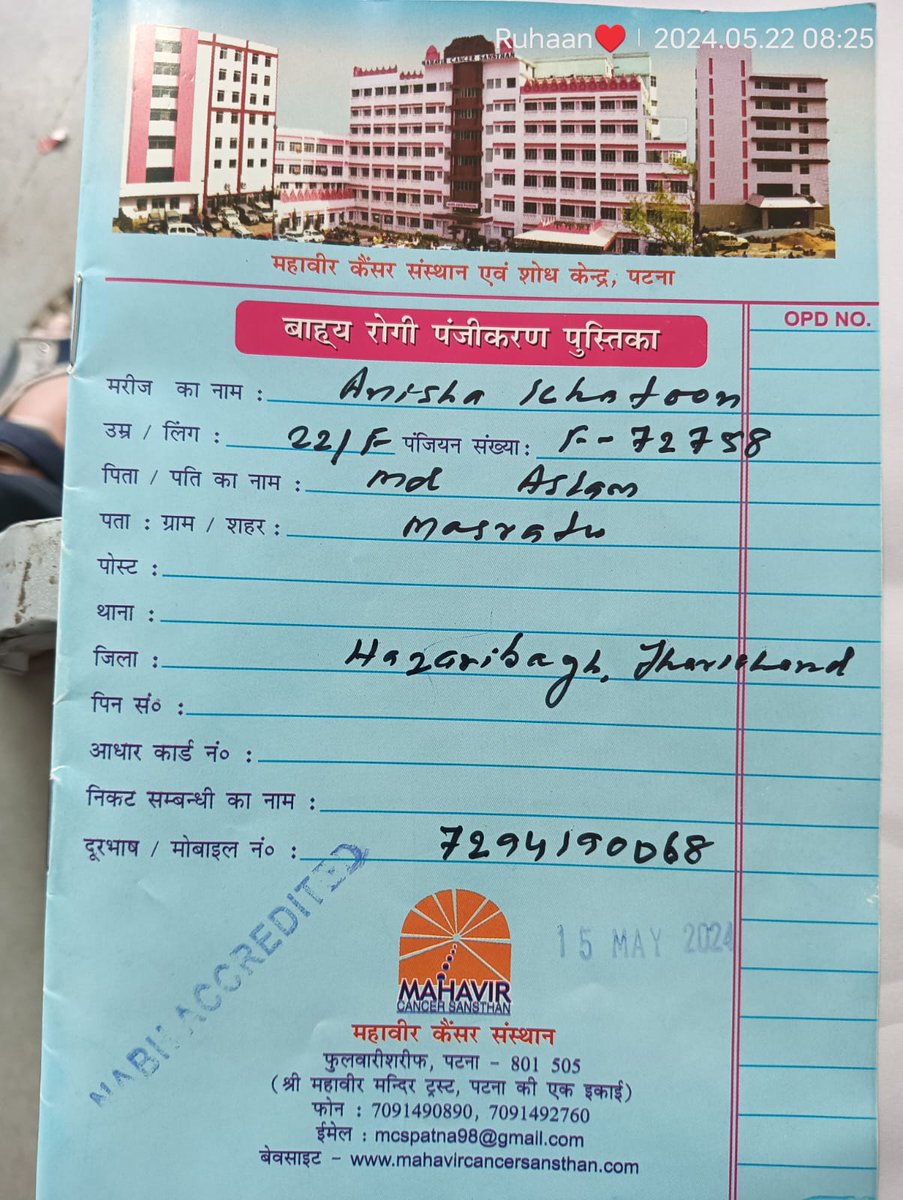 Ruhaan❤️ | 2024.05.22 08:25
MAHAVIR CANCER SANSTHAN
महावीर कैंसर संस्थान एवं शोध केन्द्र, पटना
बाह्य रोगी पंजीकरण पुस्तिका
OPD NO.
मरीज का नाम : Anisha Khatoon
उम्र / लिंग : 22/F पंजियन संख्या: F-72758
पिता / पति का नाम : Md Aslam
पता : ग्राम / शहर : Masratu
पोस्ट :
थाना :
जिला : Hazaribagh, Jharkhand
पिन सं० :
आधार कार्ड नं० :
निकट सम्बन्धी का नाम :
दूरभाष / मोबाइल नं० : 7294190068
NABH ACCREDITED
15 MAY 2024
MAHAVIR
CANCER SANSTHAN
महावीर कैंसर संस्थान
फुलवारीशरीफ, पटना - 801 505
(श्री महावीर मन्दिर ट्रस्ट, पटना की एक इकाई)
फोन : 7091490890, 7091492760
ईमेल : mcspatna98@gmail.com
बेवसाइट - www.mahavircancersansthan.com